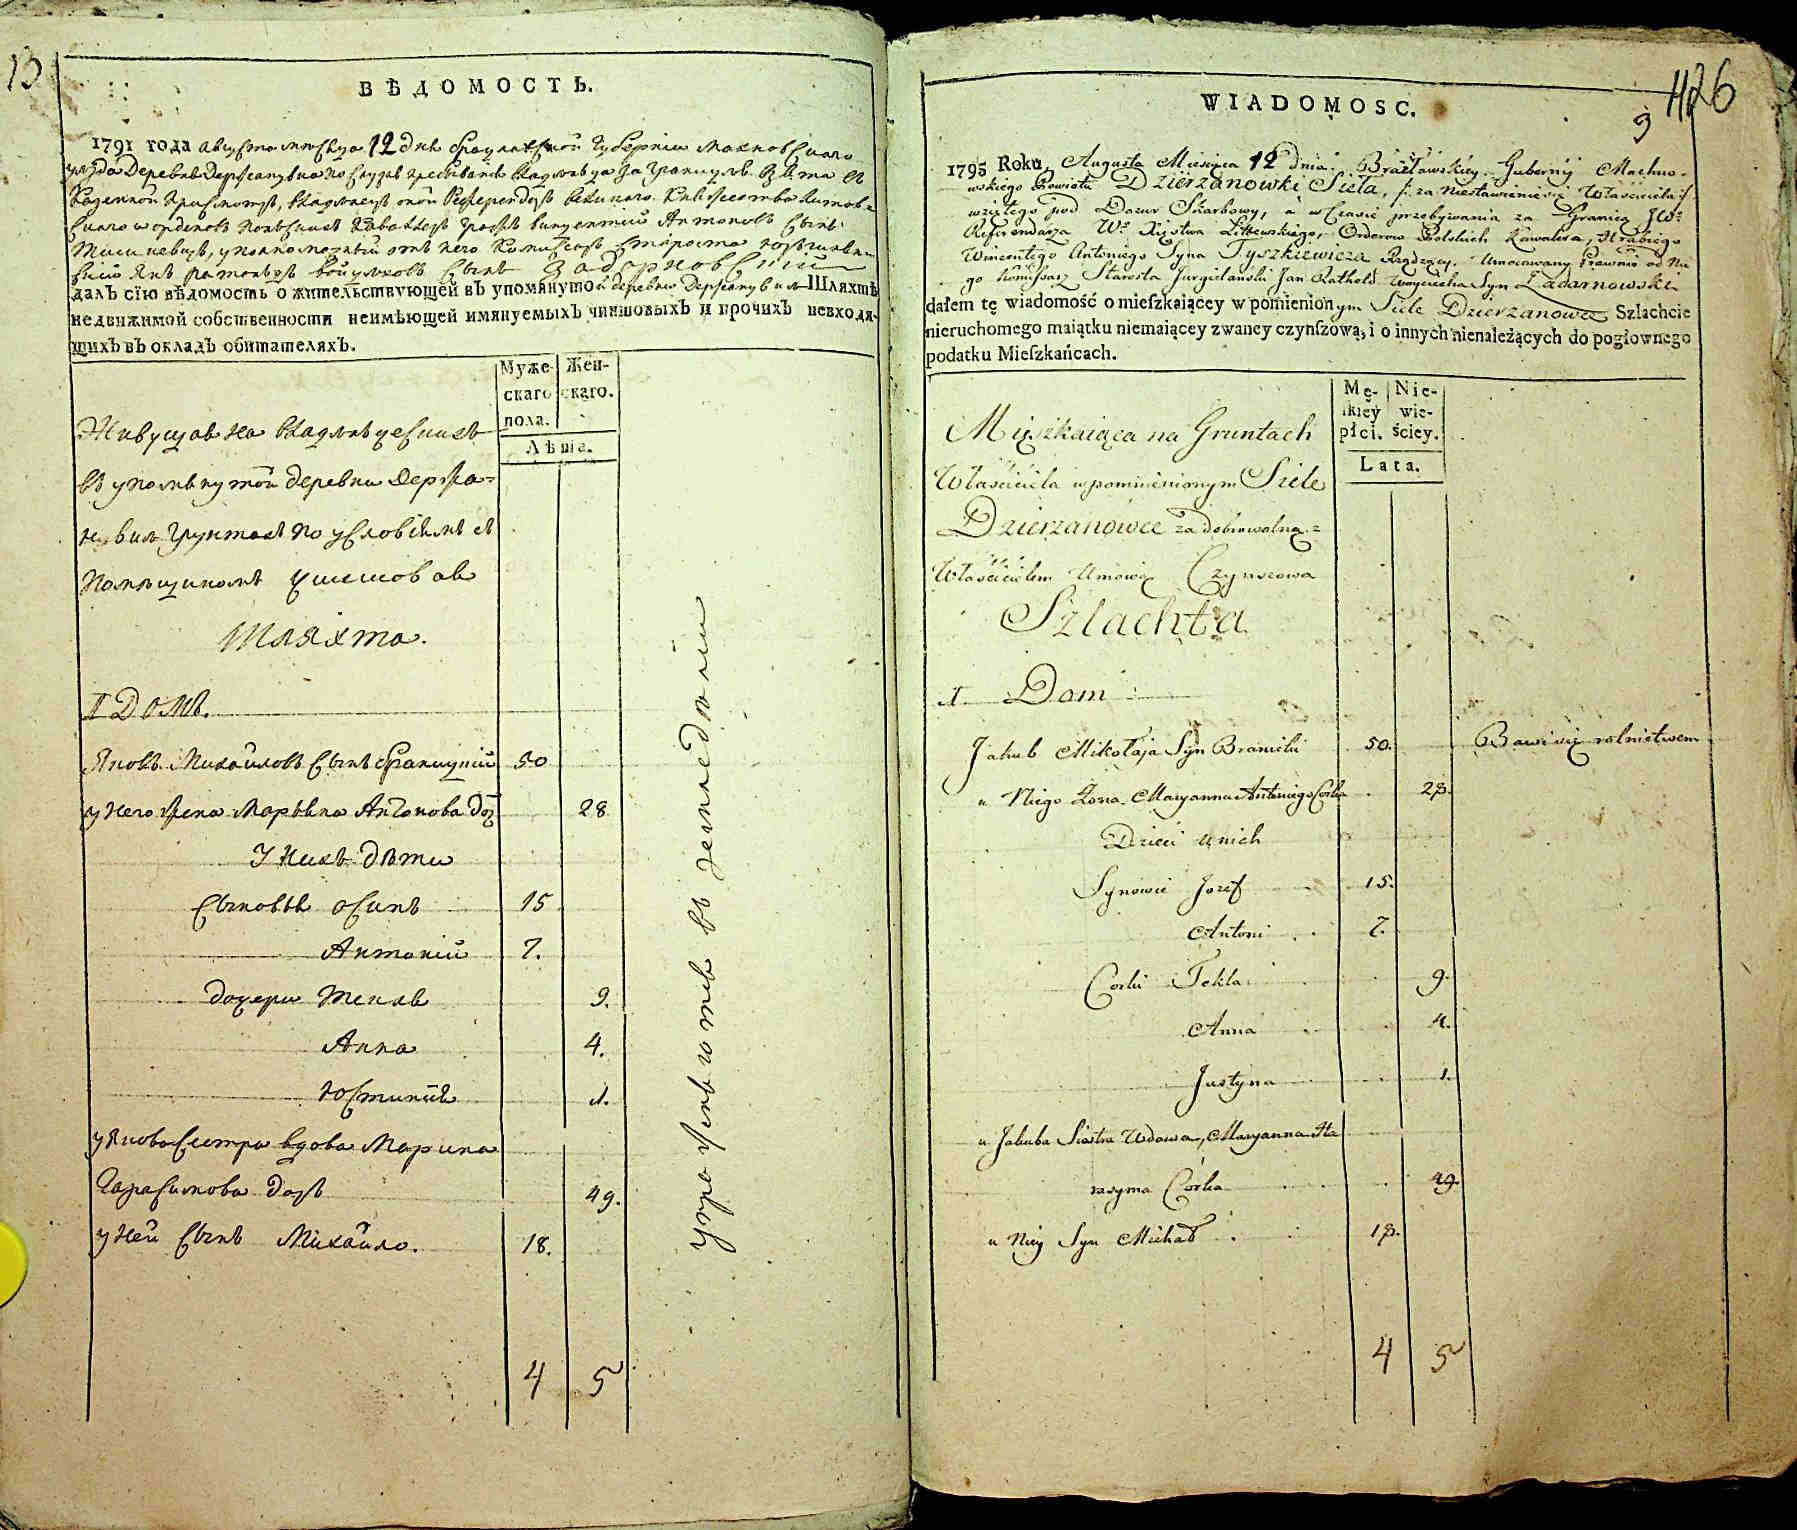 13
ВѢДОМОСТЬ.
1791 года августа мѣсяца 12 дня Брацлавской Губерніи Махновскаго
уѣзда Деревни
владѣлецъ оной Референдаръ Великаго Княжества Литов-
скаго и орденовъ Польскихъ Кавалеръ Графъ Викентій Антоновъ Сынъ
Тишкевичъ, уполномоченный отъ него Комисаръ Староста
Янъ Войцѣховъ Сынъ Задарновскій
далъ сїю вѣдомость о жительствующей въ упомянутой деревни Держановки Шляхтѣ
недвижимой собственности неимѣющей имянуемыхъ чиншовыхъ и прочихъ невходя-
щихъ въ окладъ обитателяхъ.
Муже- Жен-
скаго скаго.
пола.
Лѣта.
Живущая на владѣльческихъ
въ упомянутой деревни Держа-
новки грунтахъ по условіямъ съ
помѣщикомъ чиншовая
Шляхта.
1 Домъ.
Яковъ Михайловъ Сынъ Браницкій 50
у него жена Марьяна Антонова дочь 28
У нихъ дѣти
Сыновья Осипъ 15
Антоній 7.
дочери Текля 9.
Анна 4.
Юстинія 1.
у Якова Сестра вдова Марина
Гарасимова дочь 49.
у ней Сынъ Михайло. 18.
4 5
упражняются въ земледѣліи
1126
9
WIADOMOSC.
1795 Roku Augusta Miesiąca 12 dnia Bracławskiey Gubernij Machno-
wskiego Powiatu Dzierzanowki Sieła, za niestawieniem się Właściciela
wziętego pod Dozur Skarbowy, a w Czasie przebywania za Granicą JWo
Referendarza Wo Xięstwa Littewskiego, Orderow Polskich Kawalera, Hrabiego
Wincentego Antoniego Syna Tyszkiewicza Umocowany Prawnie od Nie
go Kommissarz Starosta Jan Rathold Woyciecha Syn Zadarnowski
dałem tę wiadomość o mieſzkaiącey w pomienionym Siele Dzierzanowce Szlachcie
nieruchomego maiątku niemaiącey zwaney czynſzową, i o innych nienależących do pogłownego
podatku Mieſzkańcach.
Mę- Nie-
ſkiey wie-
płci. ściey.
Lata.
Mięszkaiąca na Gruntach
Właściciela wpomienionym Siele
Dzierzanowce za dobrowolną =
Właścicielem Umową Czynszowa
Szlachta
1. Dom
Jakub Mikołaja Syn Branicki 50. Bawi się rolnictwem
u Niego Żona Maryanna Antoniego Corka 28.
Dzieci u nich
Synowie Jozef 15.
Antoni 7.
Corki Tekla 9.
Anna 4.
Justyna 1.
u Jakuba Siostra Wdowa, Maryanna Ha
rasyma Córka 49.
u Niey Syn Michał 18.
4 5